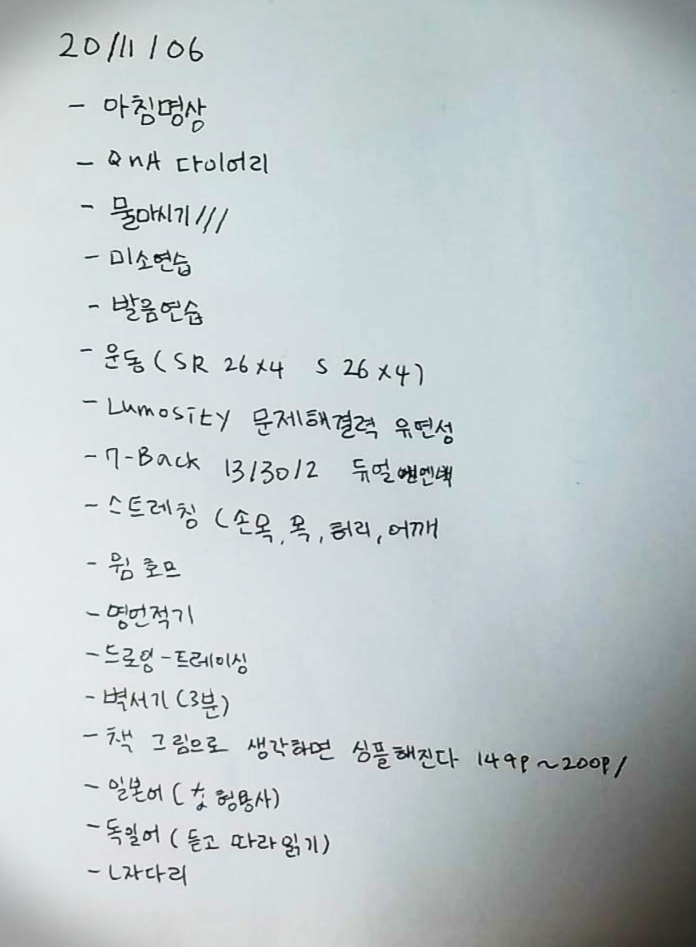 20/11/06
- 아침명상
- QnA 다이어리
- 물마시기///
- 미소연습
- 발음연습
- 운동 (SR 26x4 S 26x4)
- Lumosity 문제해결력 유연성
- 7-Back 13/30/2 듀얼 엔백
- 스트레칭 (손목, 목, 허리, 어깨
- 윔 호프
- 명언적기
- 드로잉-트레이싱
- 벽서기 (3분)
- 책 그림으로 생각하면 심플해진다 149P~200P/
- 일본어 (な형용사)
- 독일어 (듣고 따라읽기)
- L자다리